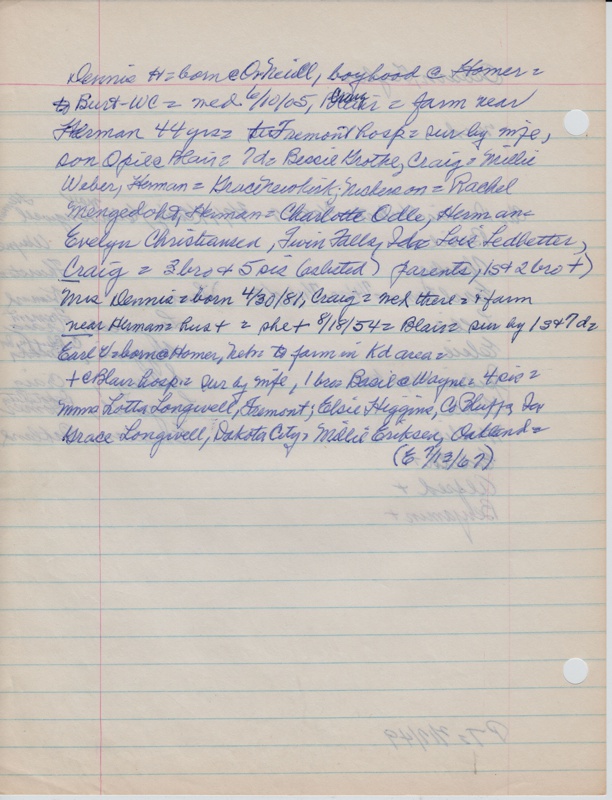 Dennis H = born @ O'Neill, boyhood @ Homer =
to Burt-WC = wed 6/10/05, Craig = farm near
Herman 44 yrs = to Fremont hosp = sur by wife,
son Opie @ Blair = 7d = Bessie Grothe, Craig = Millie
Weber, Herman = Newkirk, Nickerson = Rachel
Mengedoht, Herman = Charlotte Odle, Herman =
Evelyn Christiansen, Twin Falls, Ida Lois Ledbetter,
Craig = 3 bro + 5 sis (aslisted) parents, 1s + 2 bro +)
Mrs Dennis = born 4/30/81, Craig = wed there = + farm
near Herman = Rust + = she + 8/18/54 = Blair = sur by 1s + 7d =
Earl V = born @ Homer, Nebr to farm in Kd area =
+ @ Blair hosp = sur by wife, 1 bro Basil @ Wayne = 4 sis =
Mmes Lotta Longwell, Fremont; Elsie Higgins, Co Bluffs, Ia
Grace Longwell, Dakota City = Millie Eriksen, Oakland =
(E 7/13/67)